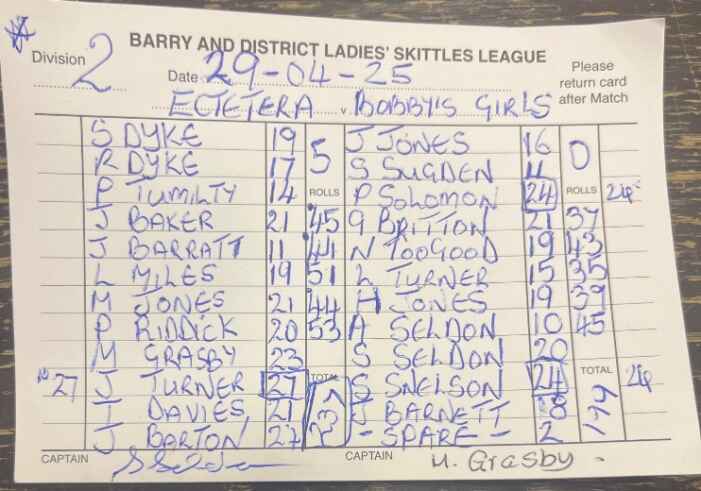 Division 2
BARRY AND DISTRICT LADIES' SKITTLES LEAGUE
Date 29-04-25
Please
return card
after Match
ECTETERA v BOBBY'S GIRLS
S DYKE 19 5 J JONES 16 0
R DYKE 17 S SUGDEN 11
P TUMILTY 14 ROLLS P SOLOMON 24 ROLLS 24
J BAKER 21 45 G BRITTON 21 37
J BARRATT 11 44 N TOOGOOD 19 43
L MILES 19 51 L TURNER 15 35
M JONES 21 44 H JONES 19 39
P RIDDICK 20 53 A SELDON 10 45
M GRASBY 23 S SELDON 20
27 J TURNER 27 TOTAL S SNELSON 24 TOTAL 24
T DAVIES 21 237 J BARNETT 18 199
J BARTON 24 - SPARE - 2
CAPTAIN CAPTAIN M. Grasby